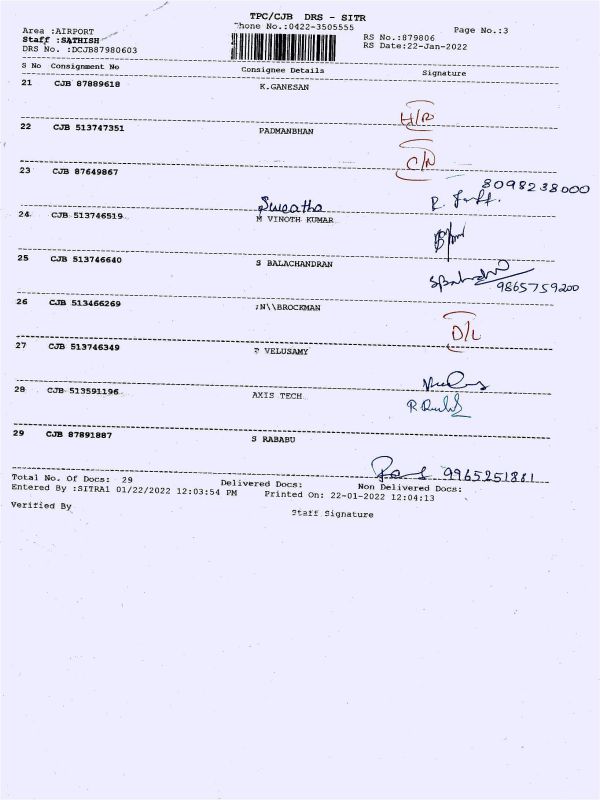 TPC/CJB DRS - SITR
Phone No.:0422-3505555
Page No.:3
Area :AIRPORT
Staff :SATHISH
DRS No. :DCJB87980603
RS No.:879806
RS Date:22-Jan-2022
S No Consignment No Consignee Details Signature
21 CJB 87889618 K.GANESAN
H/R
22 CJB 513747351 PADMANBHAN
C/N
23 CJB 87649867
8098238000
Sweatha
24 CJB 513746519 M VINOTH KUMAR
25 CJB 513746640 S BALACHANDRAN
9865759200
26 CJB 513466269 ;N\\BROCKMAN
D/L
27 CJB 513746349 P VELUSAMY
28 CJB 513591196 AXIS TECH
29 CJB 87891887 S RABABU
9965251881
Total No. Of Docs: 29 Delivered Docs: Non Delivered Docs:
Entered By :SITRA1 01/22/2022 12:03:54 PM Printed On: 22-01-2022 12:04:13
Verified By
Staff Signature